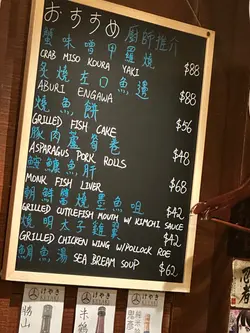 おすすめ 廚師推介
蟹味噌甲羅燒
CRAB MISO KOURA YAKI $88
炙燒左口魚邊
ABURI ENGAWA $88
燒魚餅
GRILLED FISH CAKE $56
豚肉蘆筍卷
ASPARAGUS PORK ROLLS $48
鮟鱇魚肝
MONK FISH LIVER $68
朝鮮醬燒墨魚咀
GRILLED CUTTLEFISH MOUTH W/ KIMCHI SAUCE $42
燒明太子雞翼
GRILLED CHICKEN WING W/POLLOCK ROE $42
鯛魚湯
SEA BREAM SOUP $62
けやき
けやき
けやき
勝山